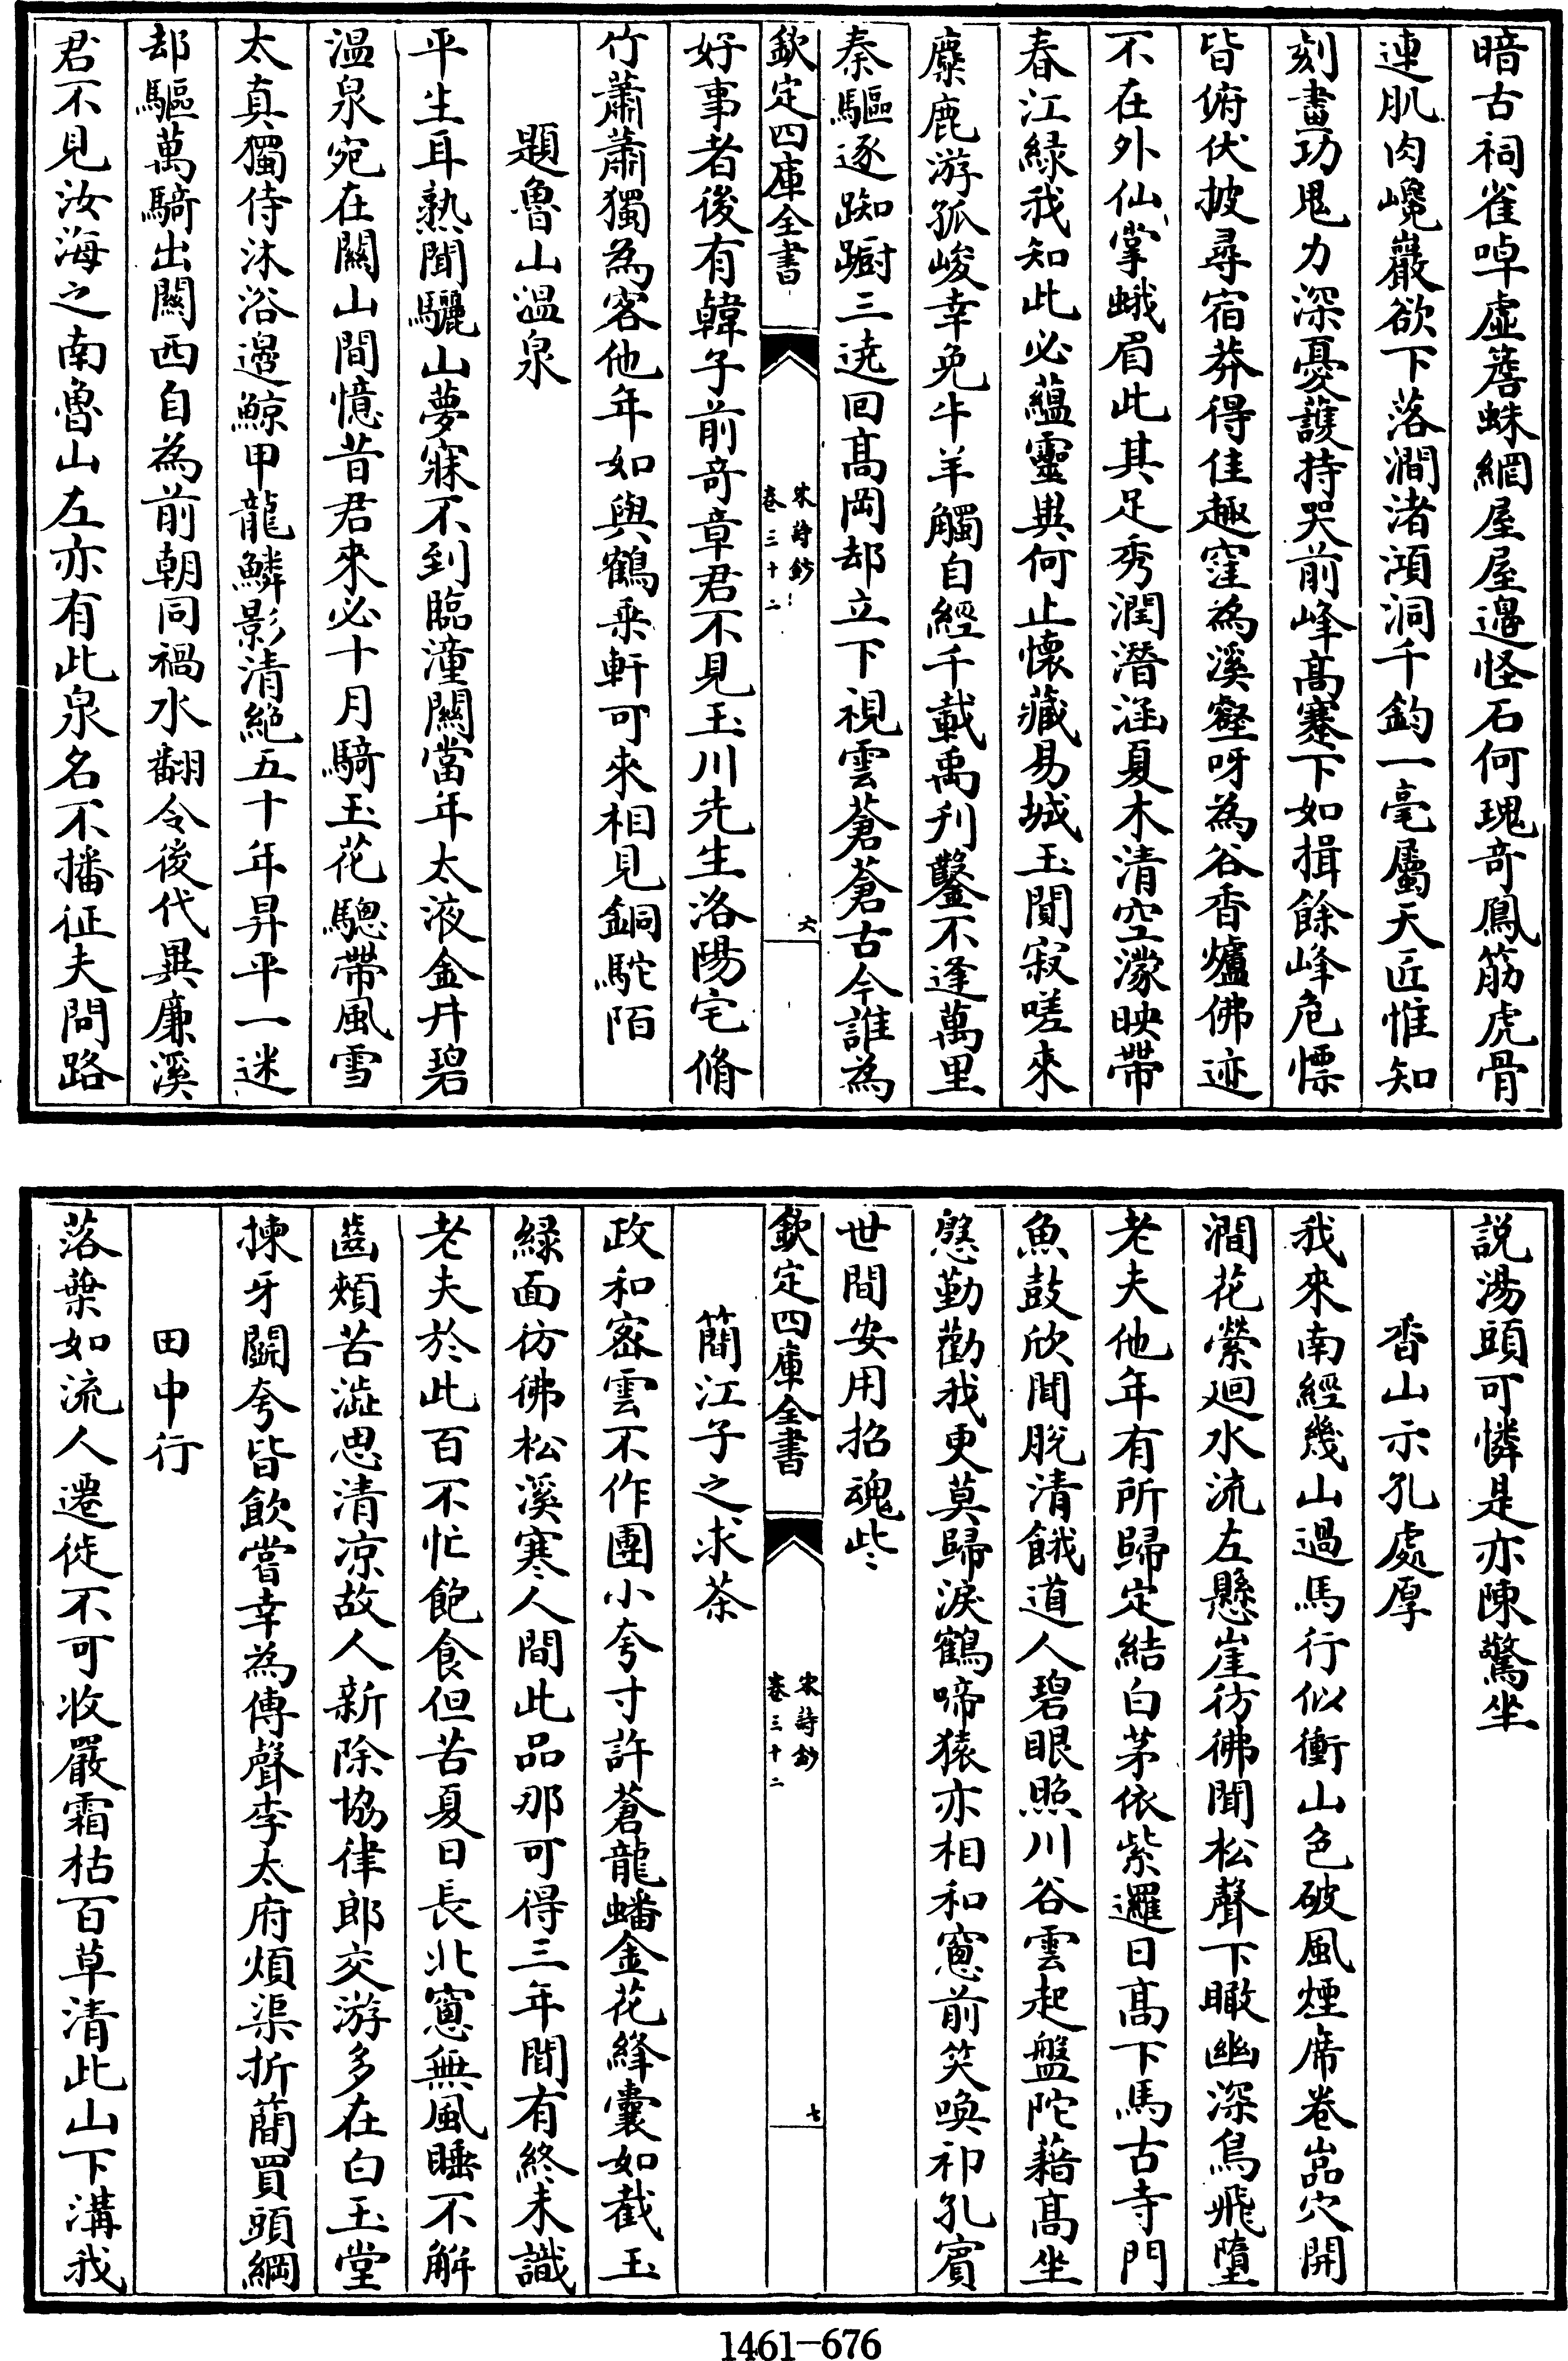 暗古祠雀啅虛簷蛛網屋屋邉怪石何瑰竒鳯筋虎骨
連肌肉巉巖欲下落澗渚澒洞千鈞一毫屬天匠惟知
刻畫功鬼力深憂䕶持哭前峰髙蹇下如揖餘峰危慓
皆俯伏披尋宿莽得佳趣窪為溪壑呀為谷香爐佛迹
不在外仙掌蛾眉此其足秀潤潛涵夏木清空濛映帶
春江緑我知此必藴靈異何止懐藏易城玉閒寂嗟來
麋鹿游孤峻幸免牛羊觸自經千載禹刋鑿不逢萬里
秦驅逐踟蹰三遶回髙岡却立下視雲蒼蒼古今誰為
欽定四庫全書
宋詩鈔
卷三十二
六
好事者後有韓子前竒章君不見玉川先生洛陽宅脩
竹蕭蕭獨為客他年如與鶴乗軒可來相見銅駝陌
題魯山温泉
平生耳熟聞驪山夢寐不到臨潼闗當年太液金井碧
温泉宛在闗山間憶昔君來必十月騎玉花驄帶風雪
太真獨侍沐浴邉鯨甲龍鱗影清絶五十年昇平一迷
却驅萬騎出闗西自為前朝同禍水翻令後代異亷溪
君不見汝海之南魯山左亦有此泉名不播征夫問路
說湯頭可憐是亦陳驚坐
香山示孔處厚
我來南經幾山過馬行似衝山色破風煙席卷嵓穴開
澗花縈廻水流左懸崖彷彿聞松聲下瞰幽深鳥飛墮
老夫他年有所歸定結白茅依紫邏日髙下馬古寺門
魚鼓欣聞脫清餓道人碧眼照川谷雲起盤陀藉髙坐
慇勤勸我更莫歸淚鶴啼猿亦相和窻前笑喚祁孔賔
世間安用招魂些
欽定四庫全書
宋詩鈔
卷三十二
七
簡江子之求茶
政和宻雲不作團小夸寸許蒼龍蟠金花絳囊如截玉
緑面彷彿松溪寒人間此品那可得三年閒有終未識
老夫於此百不忙飽食但苦夏日長北窻無風睡不解
齒頰苦澁思清凉故人新除協律郎交游多在白玉堂
揀牙鬬夸皆飲嘗幸為傳聲李太府煩渠折簡買頭綱
田中行
落葉如流人遷徙不可收嚴霜枯百草清此山下溝我
1461-676